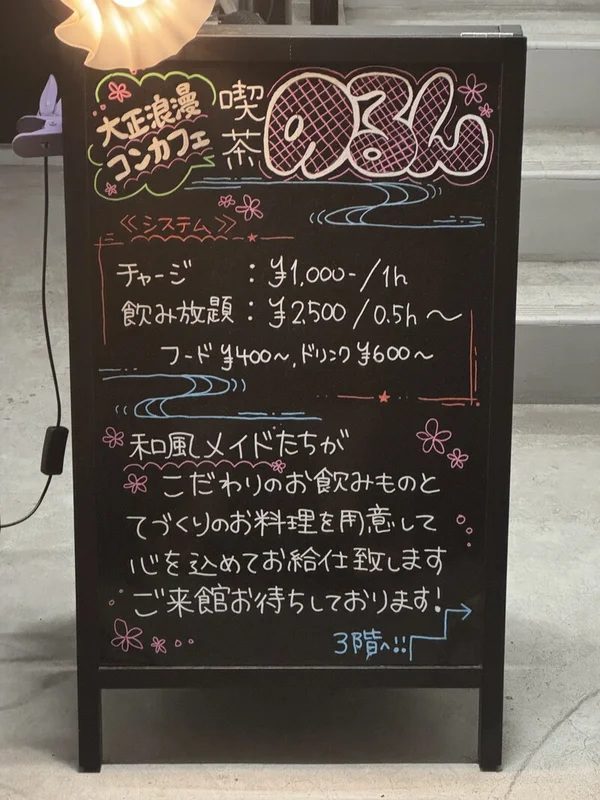 大正浪漫
コンカフェ
喫茶
のるん
≪システム≫
チャージ : ¥1,000-/1h
飲み放題 : ¥2,500/0.5h〜
フード ¥400〜, ドリンク ¥600〜
和風メイドたちが
こだわりのお飲みものと
てづくりのお料理を用意して
心を込めてお給仕致します
ご来館お待ちしております!
3階へ!!